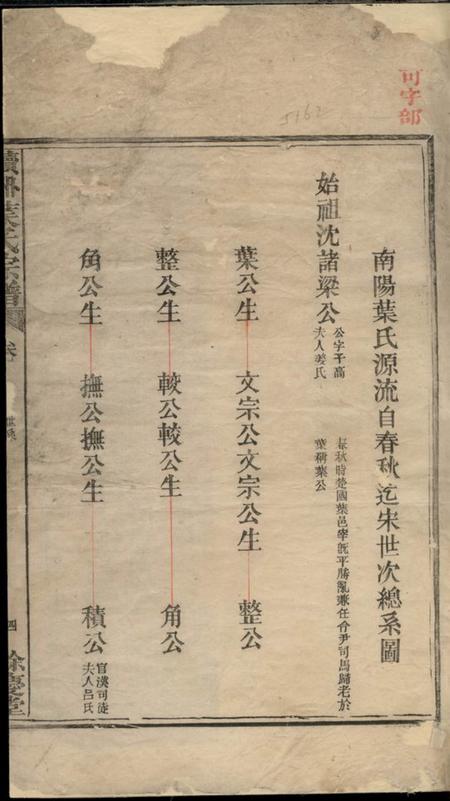 可字部
5162
南陽葉氏源流自春秋迄宋世次總系圖
始祖沈諸梁公 公字子高 夫人姜氏 春秋時楚國葉邑宰旣平勝亂兼任令尹司馬歸老於葉稱葉公
葉公生 文宗公文宗公生 整公
整公生 較公較公生 角公
角公生 撫公撫公生 積公 官漢司徒 夫人呂氏
葉氏宗譜 卷 世系 四 餘慶堂